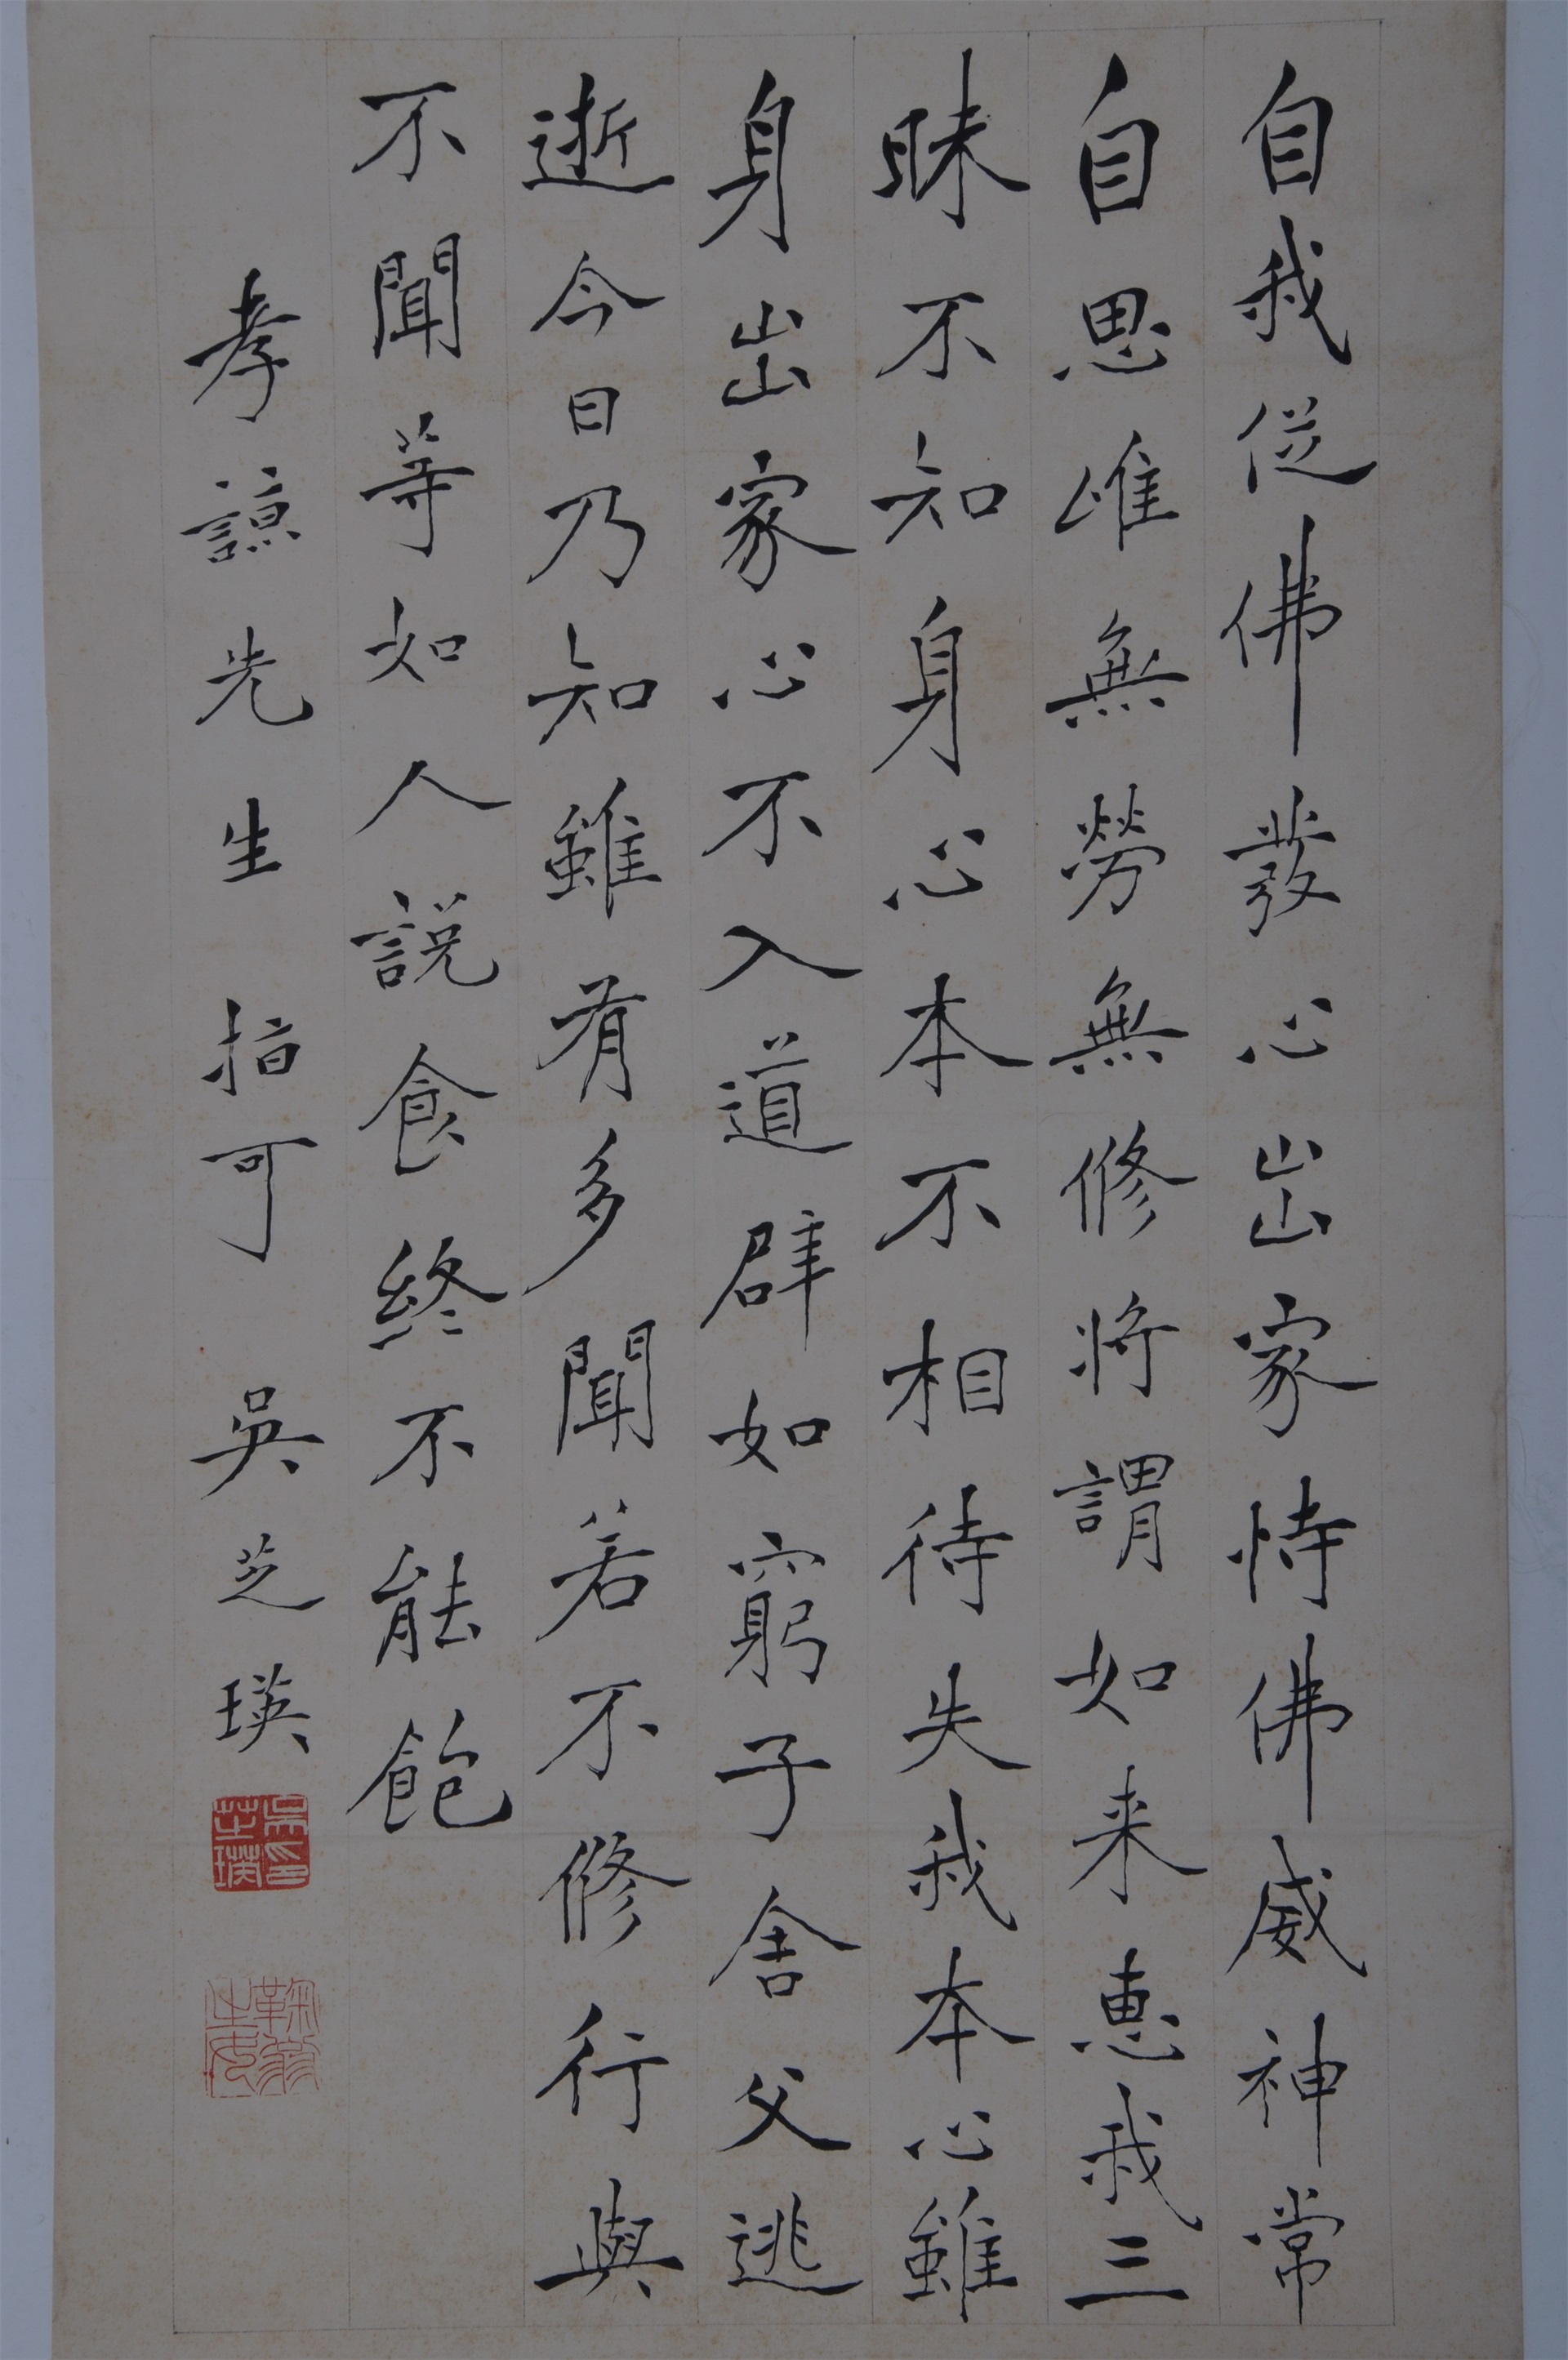 自我從佛發心出家恃佛威神常
自思惟無勞無修將謂如来惠我三
昧不知身心本不相待失我本心雖
身出家心不入道辟如窮子舍父逃
逝今日乃知雖有多聞若不修行與
不聞等如人說食終不能飽
孝諒先生指可 吳芝瑛
吳芝瑛印